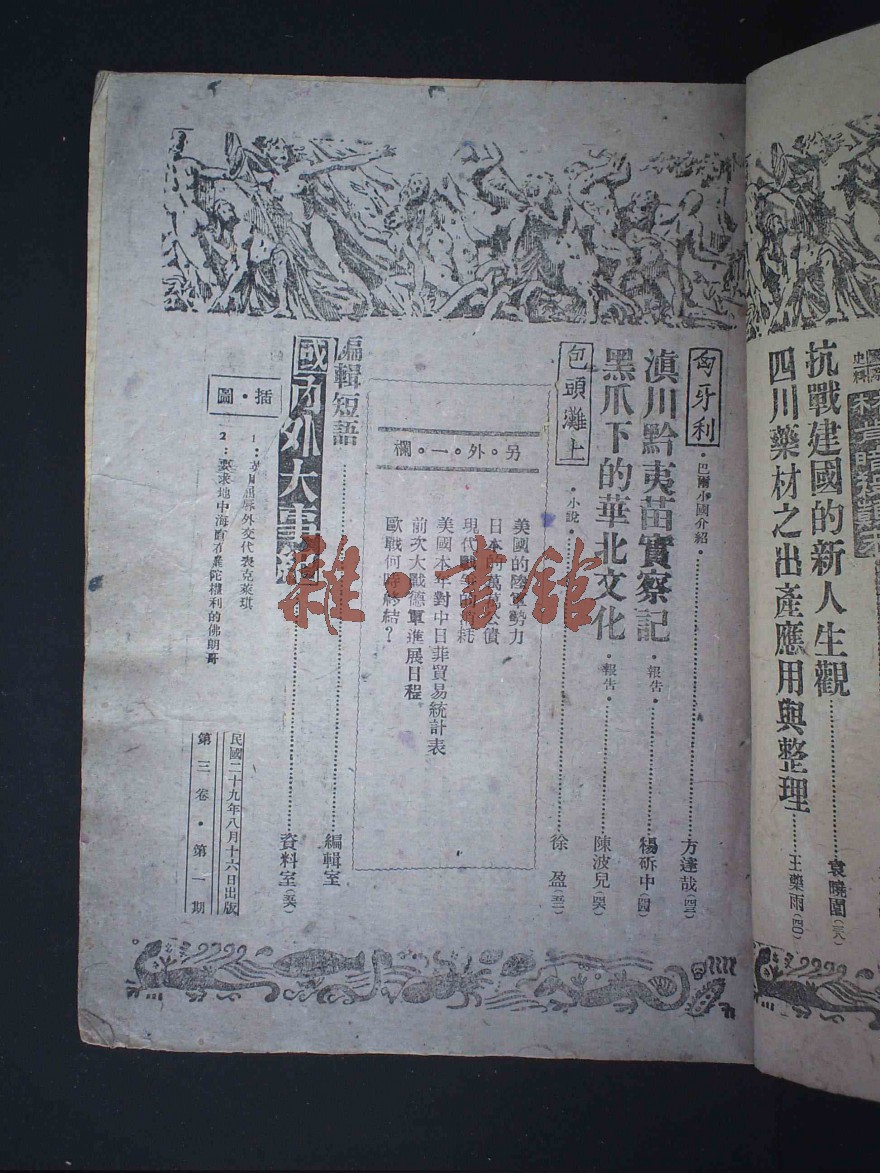 抗戰建國的新人生觀……袁曉園(三八)
四川藥材之出產應用與整理……王藥雨(四〇)
匈牙利・巴爾小國介紹・……方達哉(四三)
滇川黔夷苗實察記・報告・……楊斫中(四四)
黑爪下的華北文化・報告・……陳波兒(四六)
包頭灘上・小說・……徐盈(五二)
另・外・一・欄
美國的陸軍勢力
日本的萬萬公債
現代戰爭的消耗
美國本年對中日菲貿易統計表
前次大戰德軍進展日程
歐戰何時終結?
編輯短語……編輯室
國內外大事……資料室(五六)
插・圖
1:英日屈辱外交代表克萊琪
2:要求地中海權利的佛朗哥
民國二十九年八月十六日出版
第三卷・第一期
雜・書館